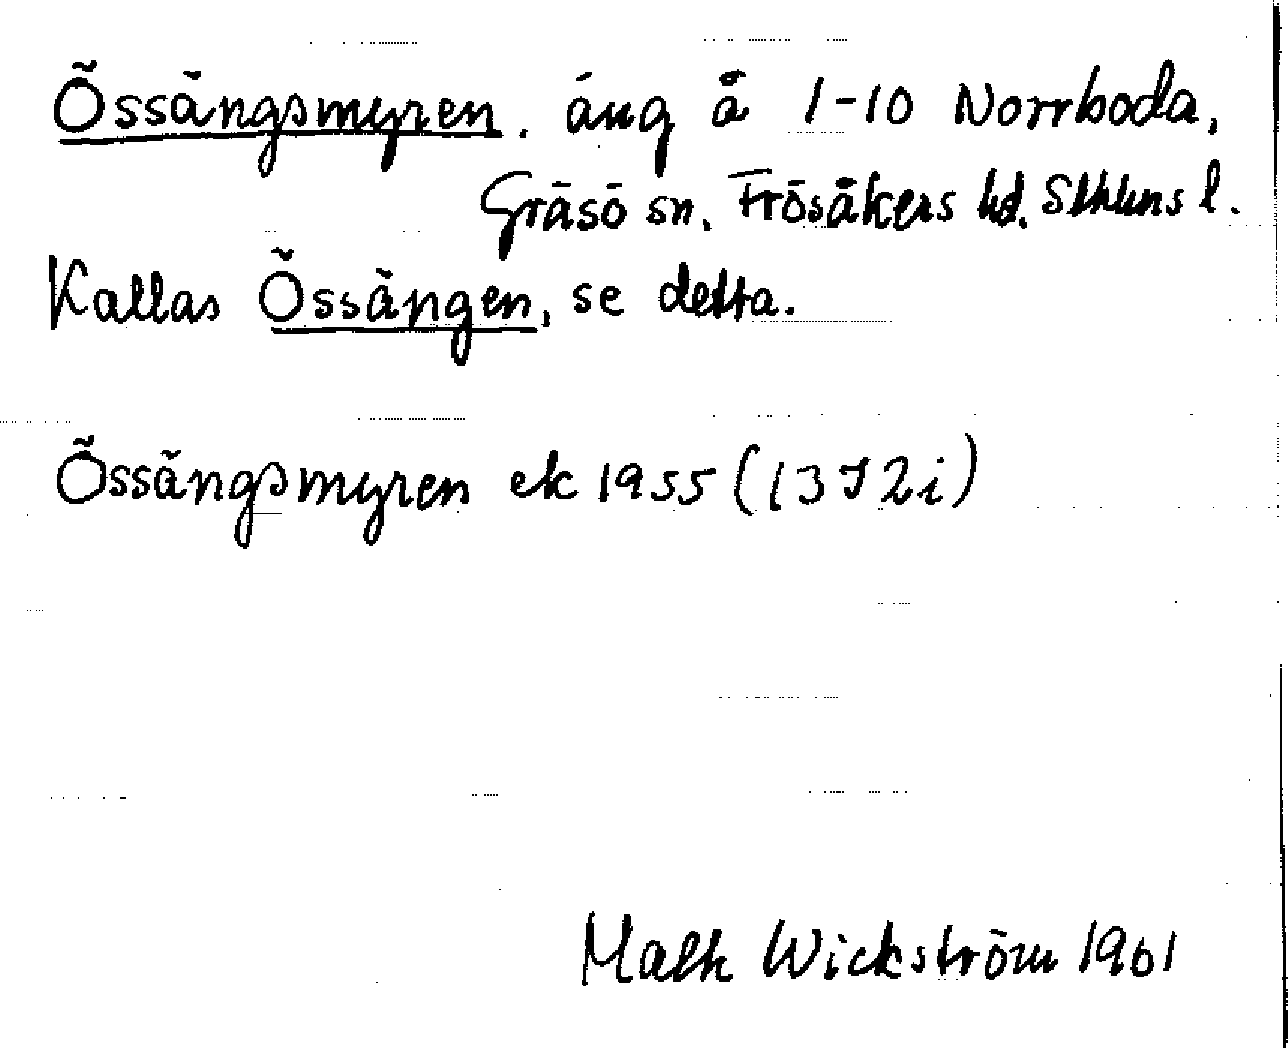 Össängsmyren. äng å 1-10 Norrboda,
Gräsö sn. Frösåkers hd. Sthlms l.
Kallas Össängen, se detta.
Össängsmyren ek 1955 (13I2i)
Wickström 1961